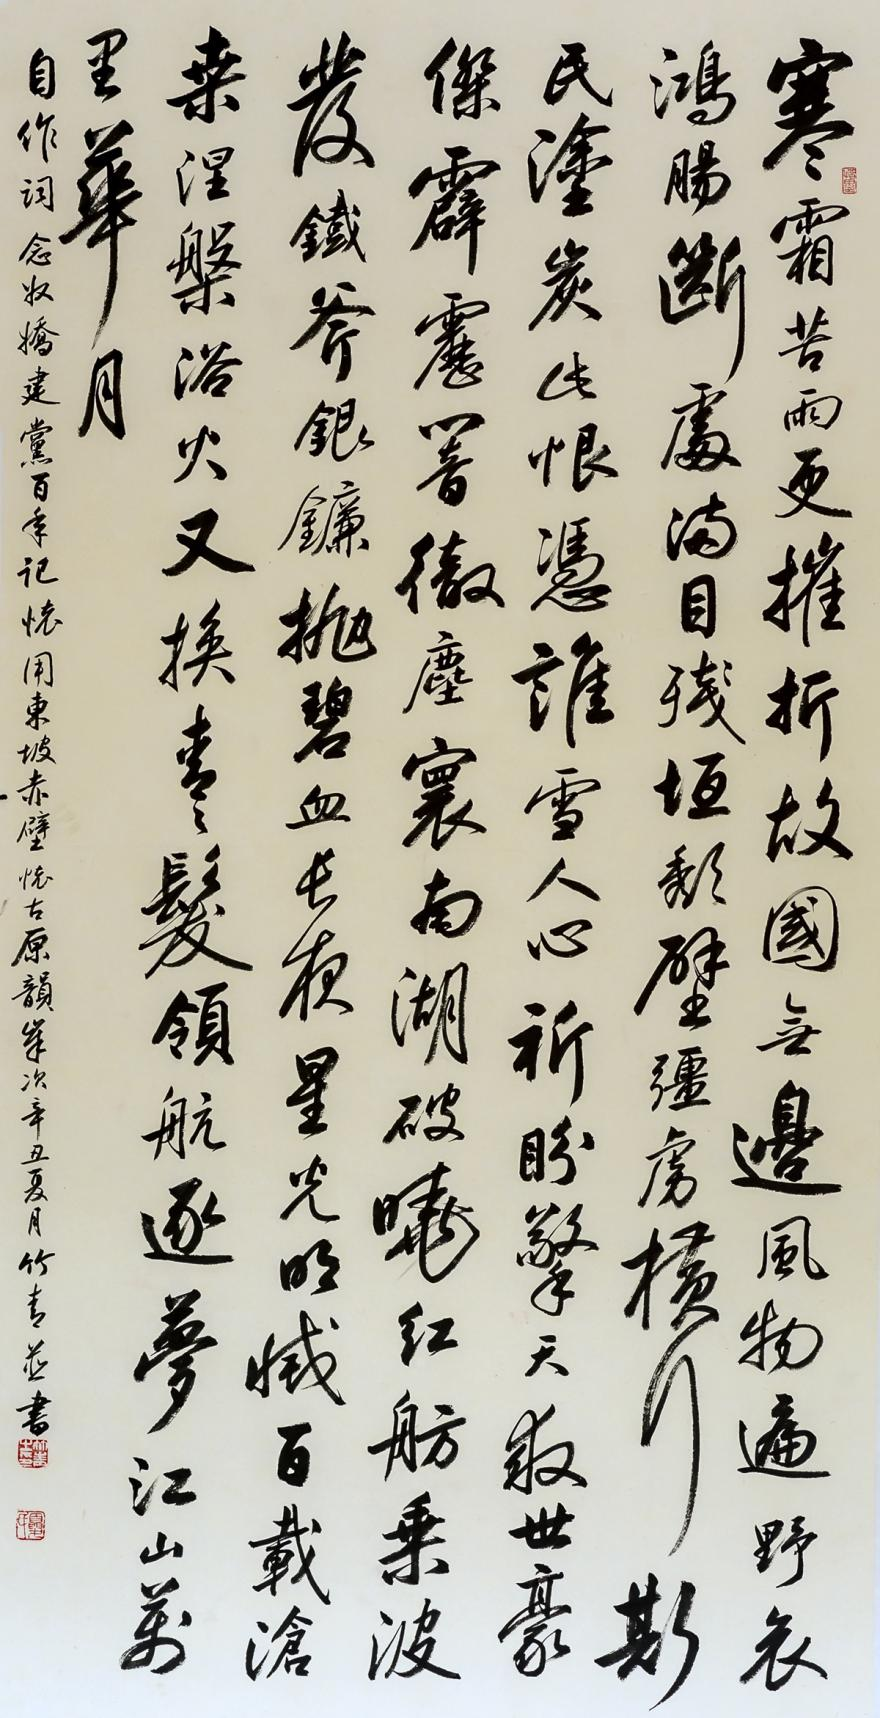 寒霜苦雨更摧折故國無邊風物遍野哀
鴻腸斷處滿目殘垣頹壁疆虜橫行斯
民塗炭此恨憑誰雪人心祈盼擎天救世豪
傑霹靂一聲音徹塵寰南湖破曉紅舫乘波
發鐵斧銀鐮拋碧血長夜星光明滅百載滄
桑涅槃浴火又換青青髮領航逐夢江山萬
里華月
自作詞念奴嬌建黨百年記懷用東坡赤壁懷古原韻峯次辛丑夏月竹青並書